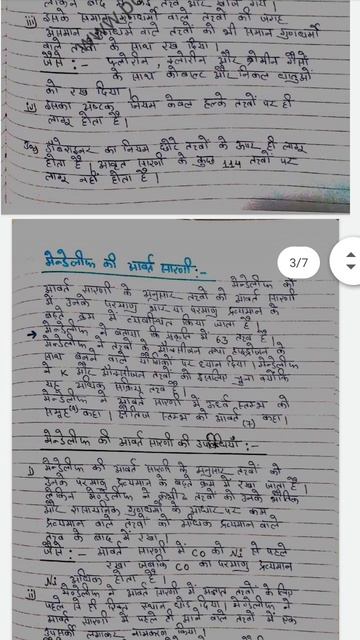 लेकिन बाद में कई तत्व और खोजे गये।
iii) इसके समान गुणधर्मो वाले तत्वों की जगह
असमान गुणधर्म वाले तत्वों को भी समान गुणधर्मो
वाले के साथ रख दिया।
जैसे :- फ्लोरीन, क्लोरीन और ब्रोमीन गैसों
के साथ कोबाल्ट और निकल धातुओं
को रख दिया।
iv) इसका अष्टक नियम केवल हल्के तत्वों पर ही
लागू होता है।
डोबेराइनर का नियम छोटे तत्वों के ऊपर ही लागू
होता है। आवर्त सारणी के कुछ 114 तत्वों पर
लागू नहीं होता है।
3/7
मेन्डेलीफ की आवर्त सारणी :-
मेन्डेलीफ की
आवर्त सारणी के अनुसार तत्वों को आवर्त सारणी
में उनके परमाणु भार या परमाणु द्रव्यमान के
बढ़ते क्रम में व्यवस्थित किया जाता है।
→ मेन्डेलीफ ने बताया कि प्रकृति में 63 तत्व है।
मेन्डेलीफ ने तत्वों के ऑक्सीजन तथा हाइड्रोजन के
साथ बनने वाले यौगिकों पर ध्यान दिया। मेन्डेलीफ
ने H और ऑक्सीजन तत्वों को इसलिए चुना क्योंकि
यह अधिक सक्रिय तत्व है।
मेन्डेलीफ ने आवर्त सारणी में ऊर्ध्व स्तम्भ को
समूह कहा। क्षैतिज स्तम्भ को आवर्त (7) कहा।
मेन्डेलीफ की आवर्त सारणी की उपलब्धियाँ :-
i) मेन्डेलीफ की आवर्त सारणी के अनुसार तत्वों को
उनके परमाणु द्रव्यमान के बढ़ते क्रम में रखा जाता है।
लेकिन मेन्डेलीफ ने कुछ तत्वों को उनके भौतिक
और रासायनिक गुणधर्मो के आधार पर कम
द्रव्यमान वाले तत्वों को अधिक द्रव्यमान वाले
तत्व के बाद में रखा।
जैसे :- आवर्त सारणी में CO को Ni से पहले
रखा जबकि CO का परमाणु द्रव्यमान
Ni अधिक होता है।
ii) मेन्डेलीफ ने आवर्त सारणी में अज्ञात तत्वों के लिए
पहले से ही रिक्त स्थान छोड़ दिया। मेन्डेलीफ ने
आवर्त सारणी में पहले ही माने वाले तत्वों में एक
उपसर्ग लगाकर नामकरण किया।